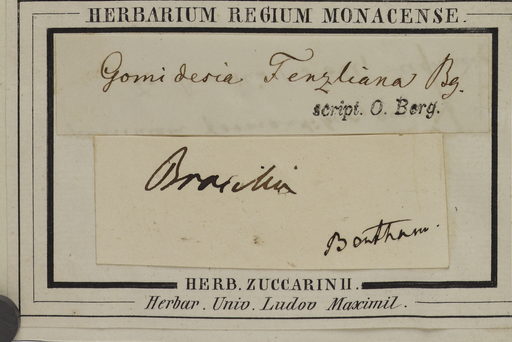 HERBARIUM REGIUM MONACENSE.
Gomidesia Fenzliana Bg.
script. O. Berg.
Brasilia
Bentham.
HERB. ZUCCARINII.
Herbar. Univ. Ludov Maximil.